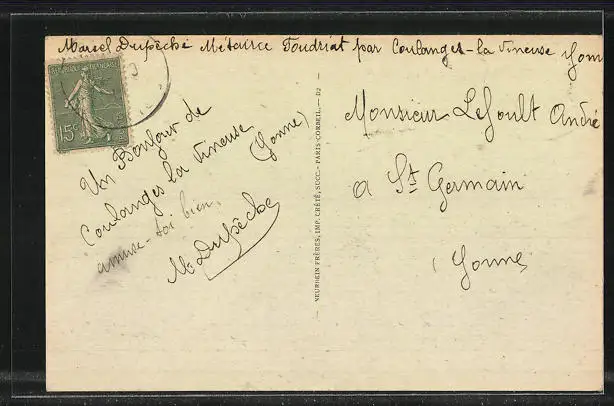 Marcel Dupêché Métairie Toudriat par Coulanges-la Vineuse Yonne
REPUBLIQUE FRANÇAISE
15c
Un Bonjour de
Coulanges la Vineuse
(Yonne)
amuse-toi bien.
M. Dupêché
NEURDEIN FRÈRES, IMP. CRÉTÉ, SUCC. — PARIS-CORBEIL. — D2
Monsieur Lesoult André
a St Germain
Yonne